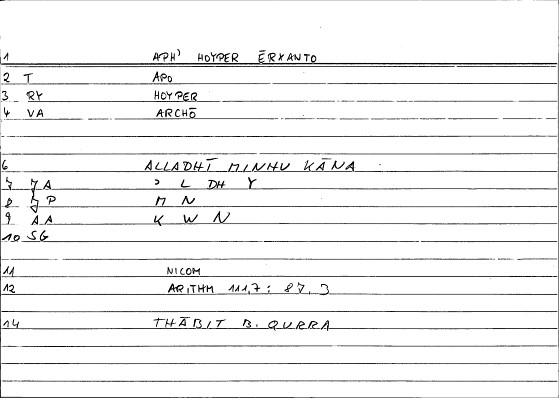 1 APH' HOYPER ĒRXANTO
2 T APO
3 RY HOYPER
4 VA ARCHŌ
6 ALLADHĪ MINHU KĀNA
7 JA ' L DH Y
8 JP M N
9 AA K W N
10 SG
11 NICOM
12 ARITHM 111,7 : 87, 3
14 THĀBIT B. QURRA